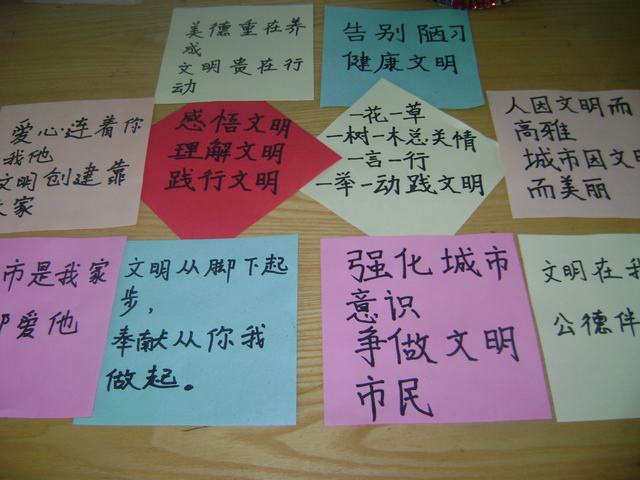 美德重在养
成
文明贵在行
动
告别陋习
健康文明
爱心连着你
我他
文明创建靠
大家
感悟文明
理解文明
践行文明
一花一草
一树一木总关情
一言一行
一举一动践文明
人因文明而
高雅
城市因文明
而美丽
市是我家
爱他
文明从脚下起
步,
奉献从你我
做起。
强化城市
意识
争做文明
市民
文明在我
公德伴